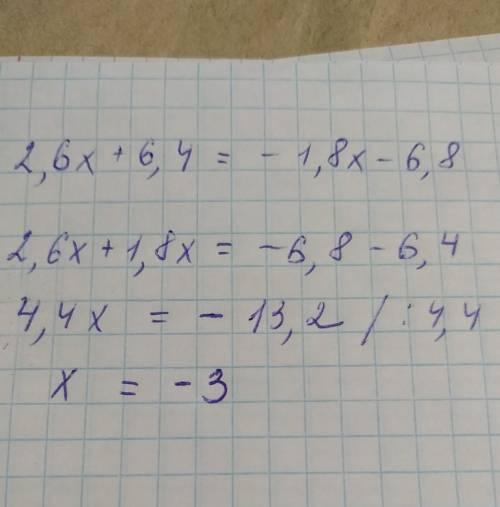 2,6x + 6,4 = - 1,8x - 6,8
2,6x + 1,8x = -6,8 - 6,4
4,4x = - 13,2 / : 4,4
x = -3